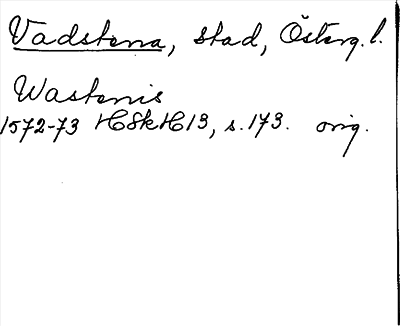 Vadstena, stad, Österg. l.
Wastenis
1572-73 HSkH 13, s. 173. orig.